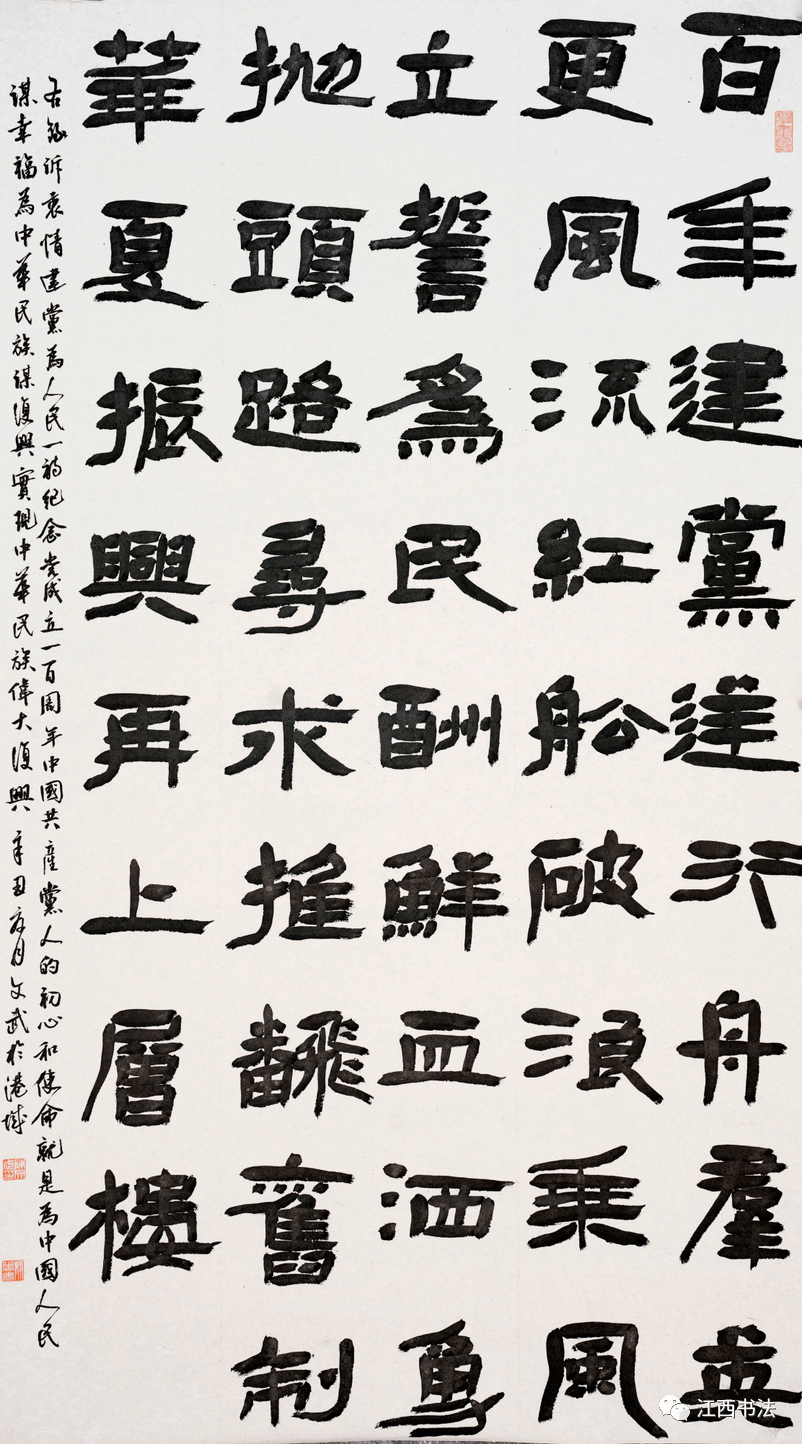 百年建黨逆行舟羣英
更風流紅舩破浪乘風
立誓爲民酬鮮血洒勇
抛頭路尋求推飜舊制
華夏振興再上層樓
右錄訴衷情建黨為人民一詞紀念党成立一百周年中國共產黨人的初心和使命就是為中國人民
謀幸福為中華民族謀復興實現中華民族偉大復興辛丑夏月文武於港城
江西书法